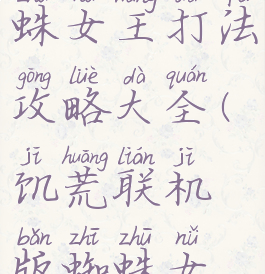 蛛女王打法
gōng lüè dà quán
攻略大全(
jī huāng lián jī
饥荒联机
bǎn zhī zhū nǚ
版蜘蛛女